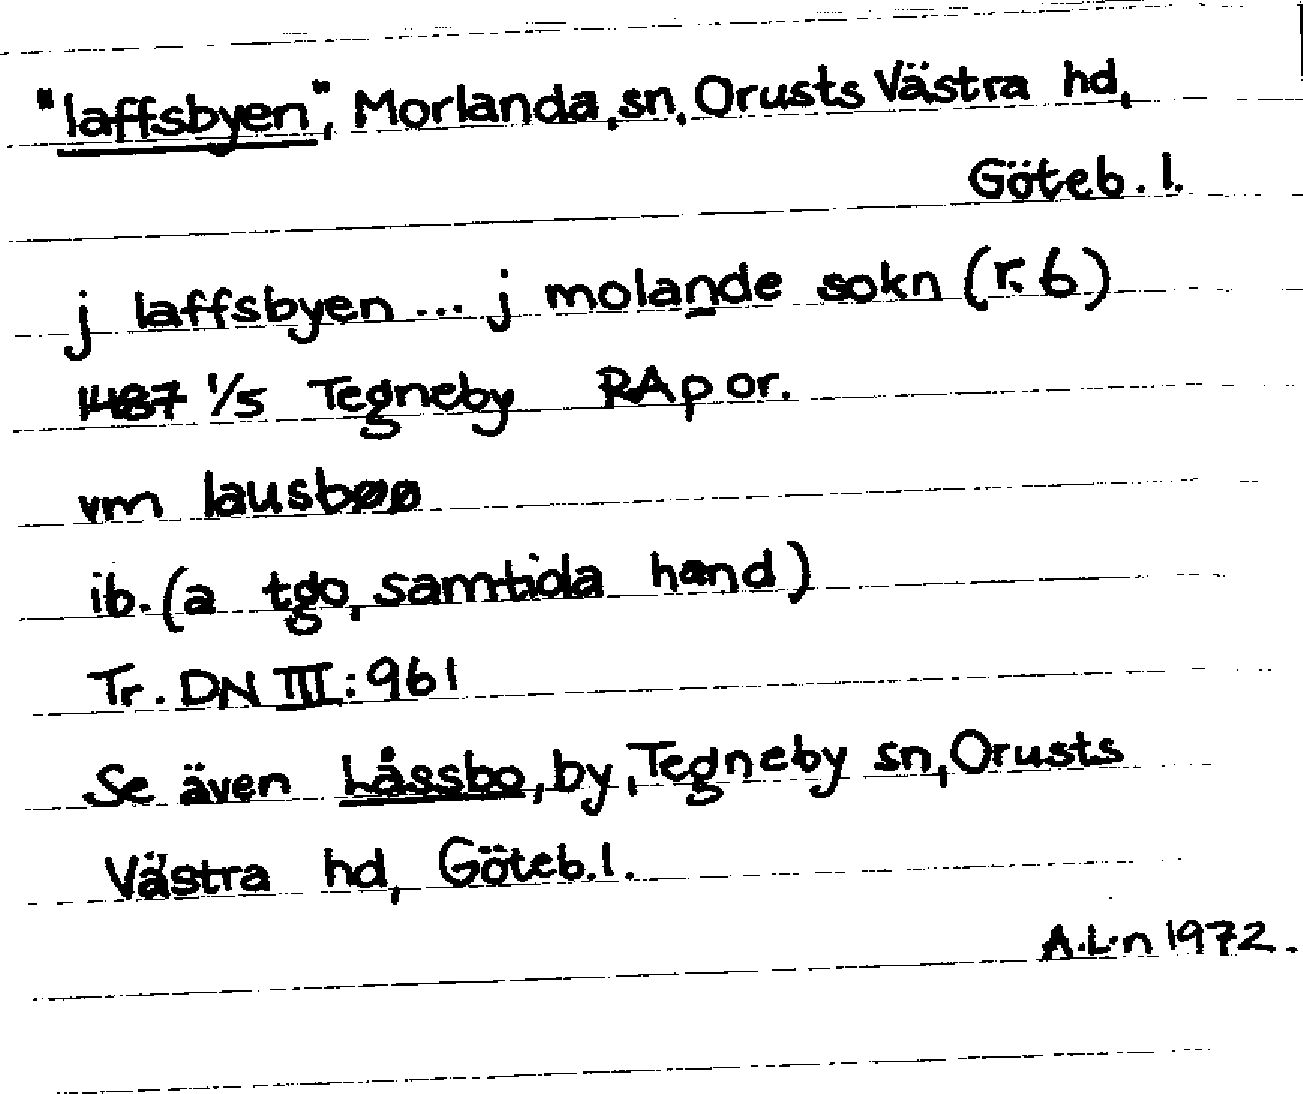 "laffsbyen", Morlanda sn, Orusts Västra hd,
Göteb. l.
j laffsbyen ... j molande sokn (r. 6)
1487 1/5 Tegneby RAp or.
vm lausbøø
ib. (a tgo, samtida hand)
Tr. DN III: 961
Se även Låssbo, by, Tegneby sn, Orusts
Västra hd, Göteb. l.
A.L:n 1972.